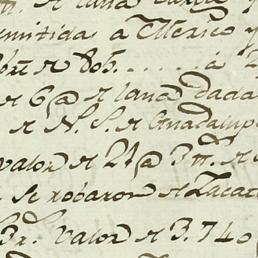 de lana
remitida á Mexico y
de 805...... á
de 6@ de lana dada
de N. S. de Guadalup
valor de 21@ 3
se robaron de Zacat
3 r. valor de 3.740